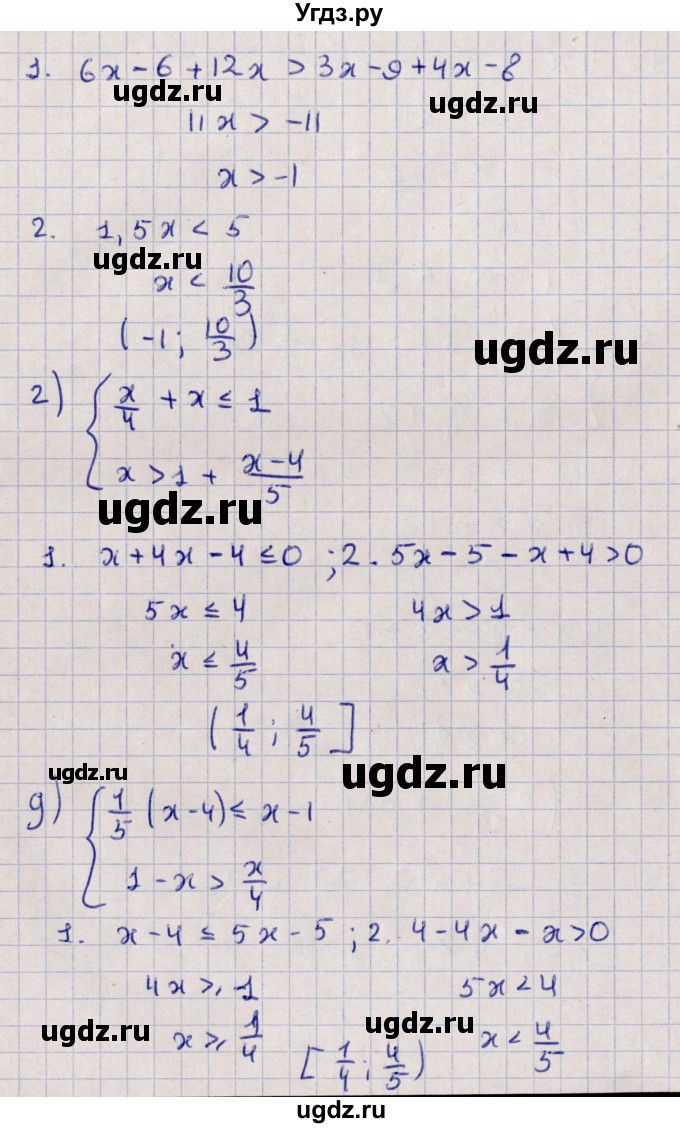 Угдз.ру
1. 6x - 6 + 12x > 3x - 9 + 4x - 8
ugdz.ru ugdz.ru
11x > -11
x > -1
2. 1,5x < 5
ugdz.ru
x < 10/3
ugdz.ru
(-1; 10/3)
2) { x/4 + x ≤ 1
x > 1 + (x-4)/5
ugdz.ru
1. x + 4x - 4 ≤ 0 ; 2. 5x - 5 - x + 4 > 0
5x ≤ 4 4x > 1
x ≤ 4/5 x > 1/4
(1/4; 4/5]
ugdz.ru ugdz.ru
g) { 1/5 (x-4) ≤ x - 1
1 - x > x/4
1. x - 4 ≤ 5x - 5 ; 2. 4 - 4x - x > 0
4x ⩾ 1 5x < 4
ugdz.ru ugdz.ru
x ⩾ 1/4 x < 4/5
[1/4; 4/5)
ugdz.ru